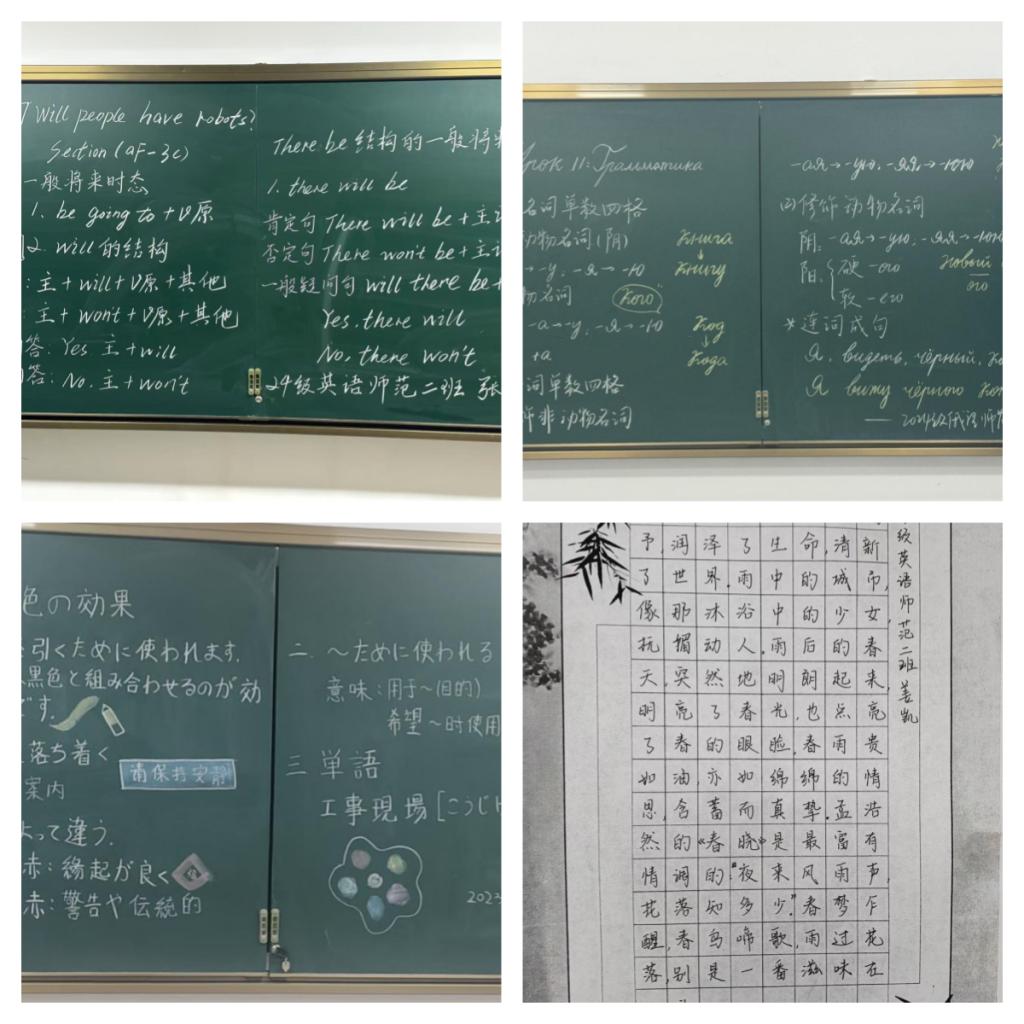 Will people have robots?
Section (aF-3c)
一般将来时态
1. be going to + V原
2. will的结构
: 主 + will + V原 + 其他
: 主 + won't + V原 + 其他
答: Yes 主 + will
答: No. 主 + won't
There be 结构的一般将来
1. there will be
肯定句 There will be + 主
否定句 There won't be + 主
一般疑问句 will there be +
Yes. there will
No. there won't
24级英语师范二班 张
Урок 11: Грамматика
名词单数四格
动物名词(阴)
→-у. -я → -ю
物名词
-а→-у. -я → -ю
+а
词单数四格
非动物名词
книга
↓
книгу
"Кого"
Код
↓
Кода
-ая→-ую. -яя→-юю
四修饰动物名词
阴: -ая→-ую. -яя→-юю
阳: 硬 -ого
软 -его
Новый
ого
*连词成句
Я, видеть, чёрный, ко
Я вижу чёрного кот
—— 2024级俄语师范
色の効果
を引くために使われます.
黒色と組み合わせるのが効
です.
落ち着く
案内
请保持安静
よって違う.
赤: 縁起が良く
赤: 警告や伝統的
二. ～ために使われる
意味: 用于～(目的)
希望～时使用
三 単語
工事現場[こうじ
2023
级英语师范二班 姜凯
予,润泽了生命,清新
了世界.雨中的城市,
像那沐浴中的少女,
抚媚动人.雨后的春
天,突然地明朗起来,
明亮了春光,也点亮
了春的眼睑,春雨贵
如油,亦如绵绵的情
思,含蓄而真挚.孟浩
然的《春晓》是最富有
情调的:"夜来风雨声,
花落知多少."春梦乍
醒,春鸟啼歌,雨过花
落,别是一番滋味在